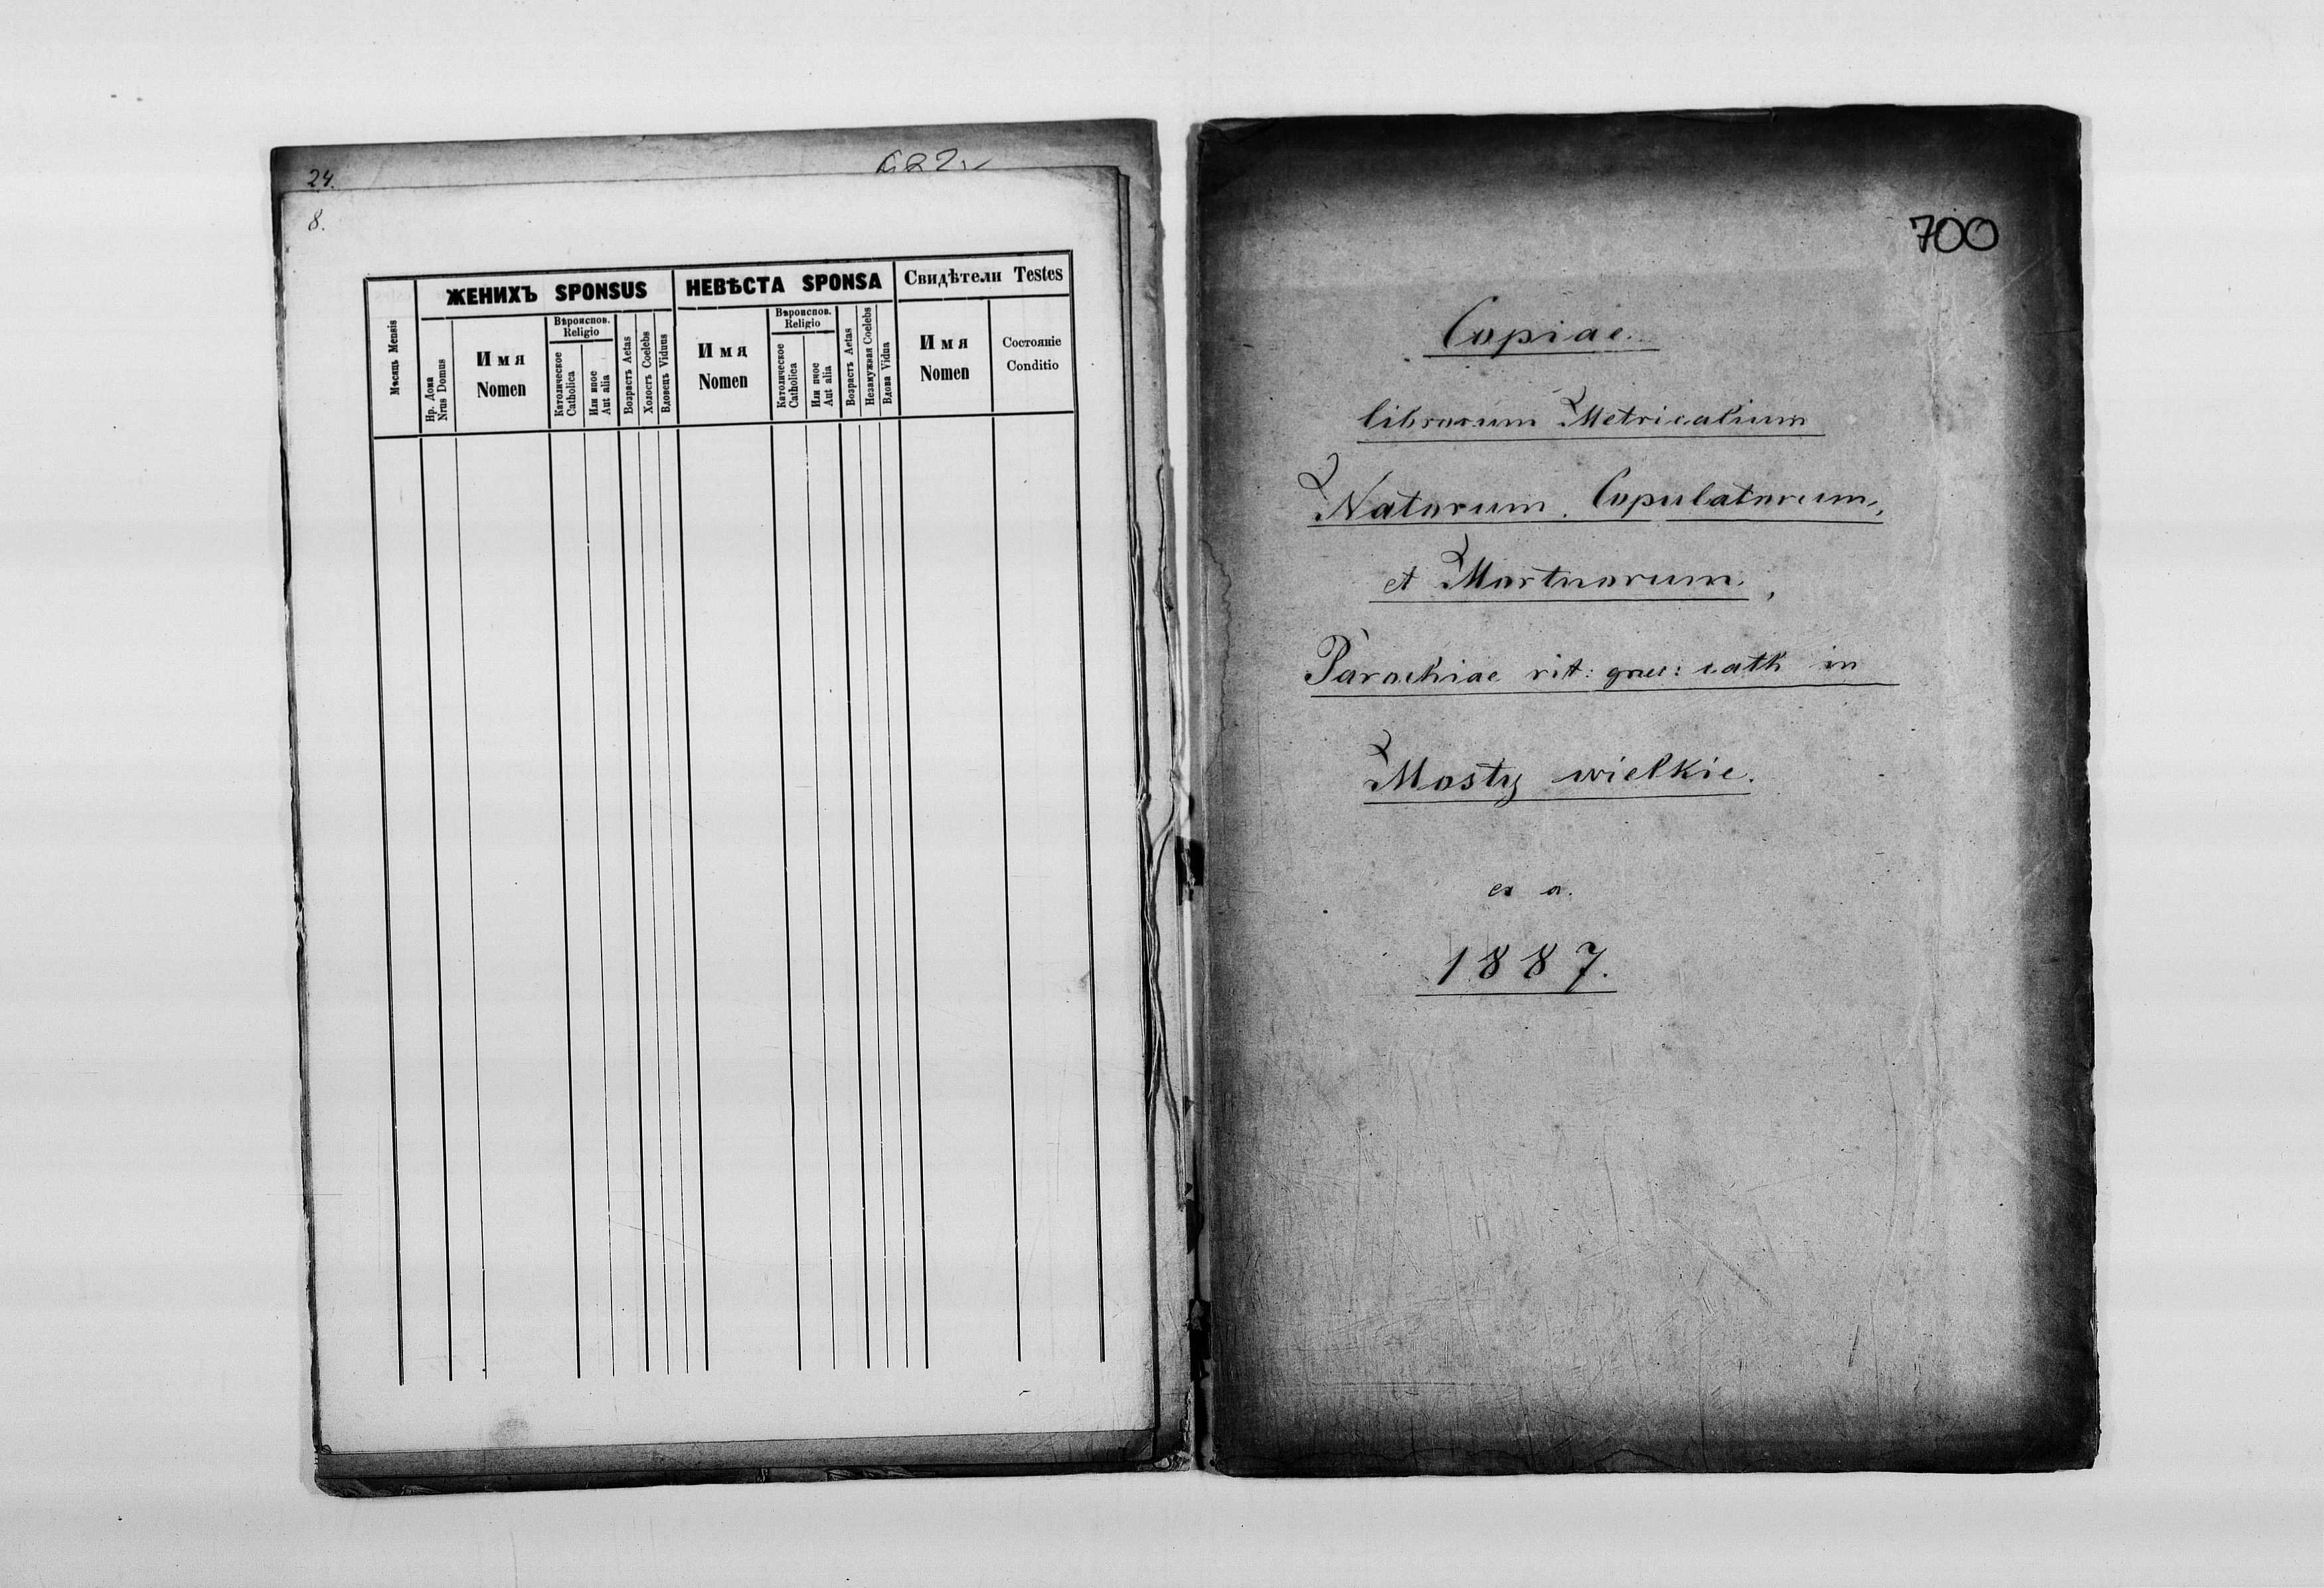 24.
8.
ЖЕНИХЪ SPONSUS
НЕВѢСТА SPONSA
Свидѣтели Testes
Мѣсяць Mensis
Нр. Дома
Nrus Domus
Имя
Nomen
Вѣроиспов.
Religio
Католическое
Catholica
Или иное
Aut alia
Возрастъ Aetas
Холостъ Coelebs
Вдовець Viduus
Имя
Nomen
Вѣроиспов.
Religio
Католическое
Catholica
Или иное
Aut alia
Возрастъ Aetas
Незамужная Coelebs
Вдова Vidua
Имя
Nomen
Состояніе
Conditio
700
Copiae.
librorum Metricalium
Natorum, Copulatorum,
et Mortuorum,
Parochiae rit: graec: cath in
Mosty wielkie.
ex a.
1887.